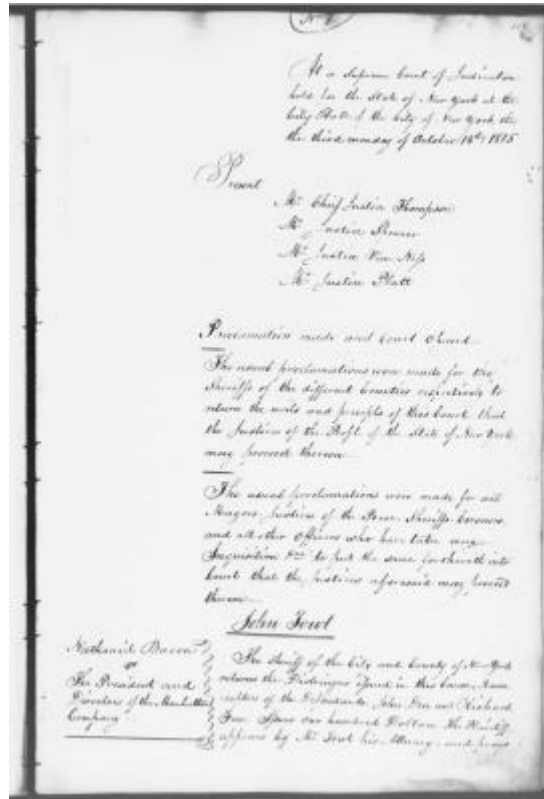 At a Supreme Court of Judicature
held for the State of New York at the
City Hall of the City of New York
the third monday of October (16th) 1815
Present
Mr. Chief Justice Thompson
Mr. Justice Spencer
Mr. Justice Van Ness
Mr. Justice Platt
Proclamation made and Court Opened
The usual proclamations were made for the
Sheriffs of the different Counties respectively to
return the writs and precepts of this Court that
the Justices of the People of the State of New York
may proceed thereon
The usual proclamations were made for all
Mayors, Justices of the Peace, Sheriffs Coroners
and all other Officers who have taken any
Inquisition to put the same forthwith into
Court that the Justices aforesaid may proceed
thereon
John Towt
Nathaniel Bacon
vs
The President and
Directors of the Manhattan
Company
The Sheriff of the City and County of New York
returns the Distringas issued in this cause,
of the Defendants John Den and Richard
Fen Issues one hundred Dollars the Plaintiff
appears by Mr Towt his Attorney and prays